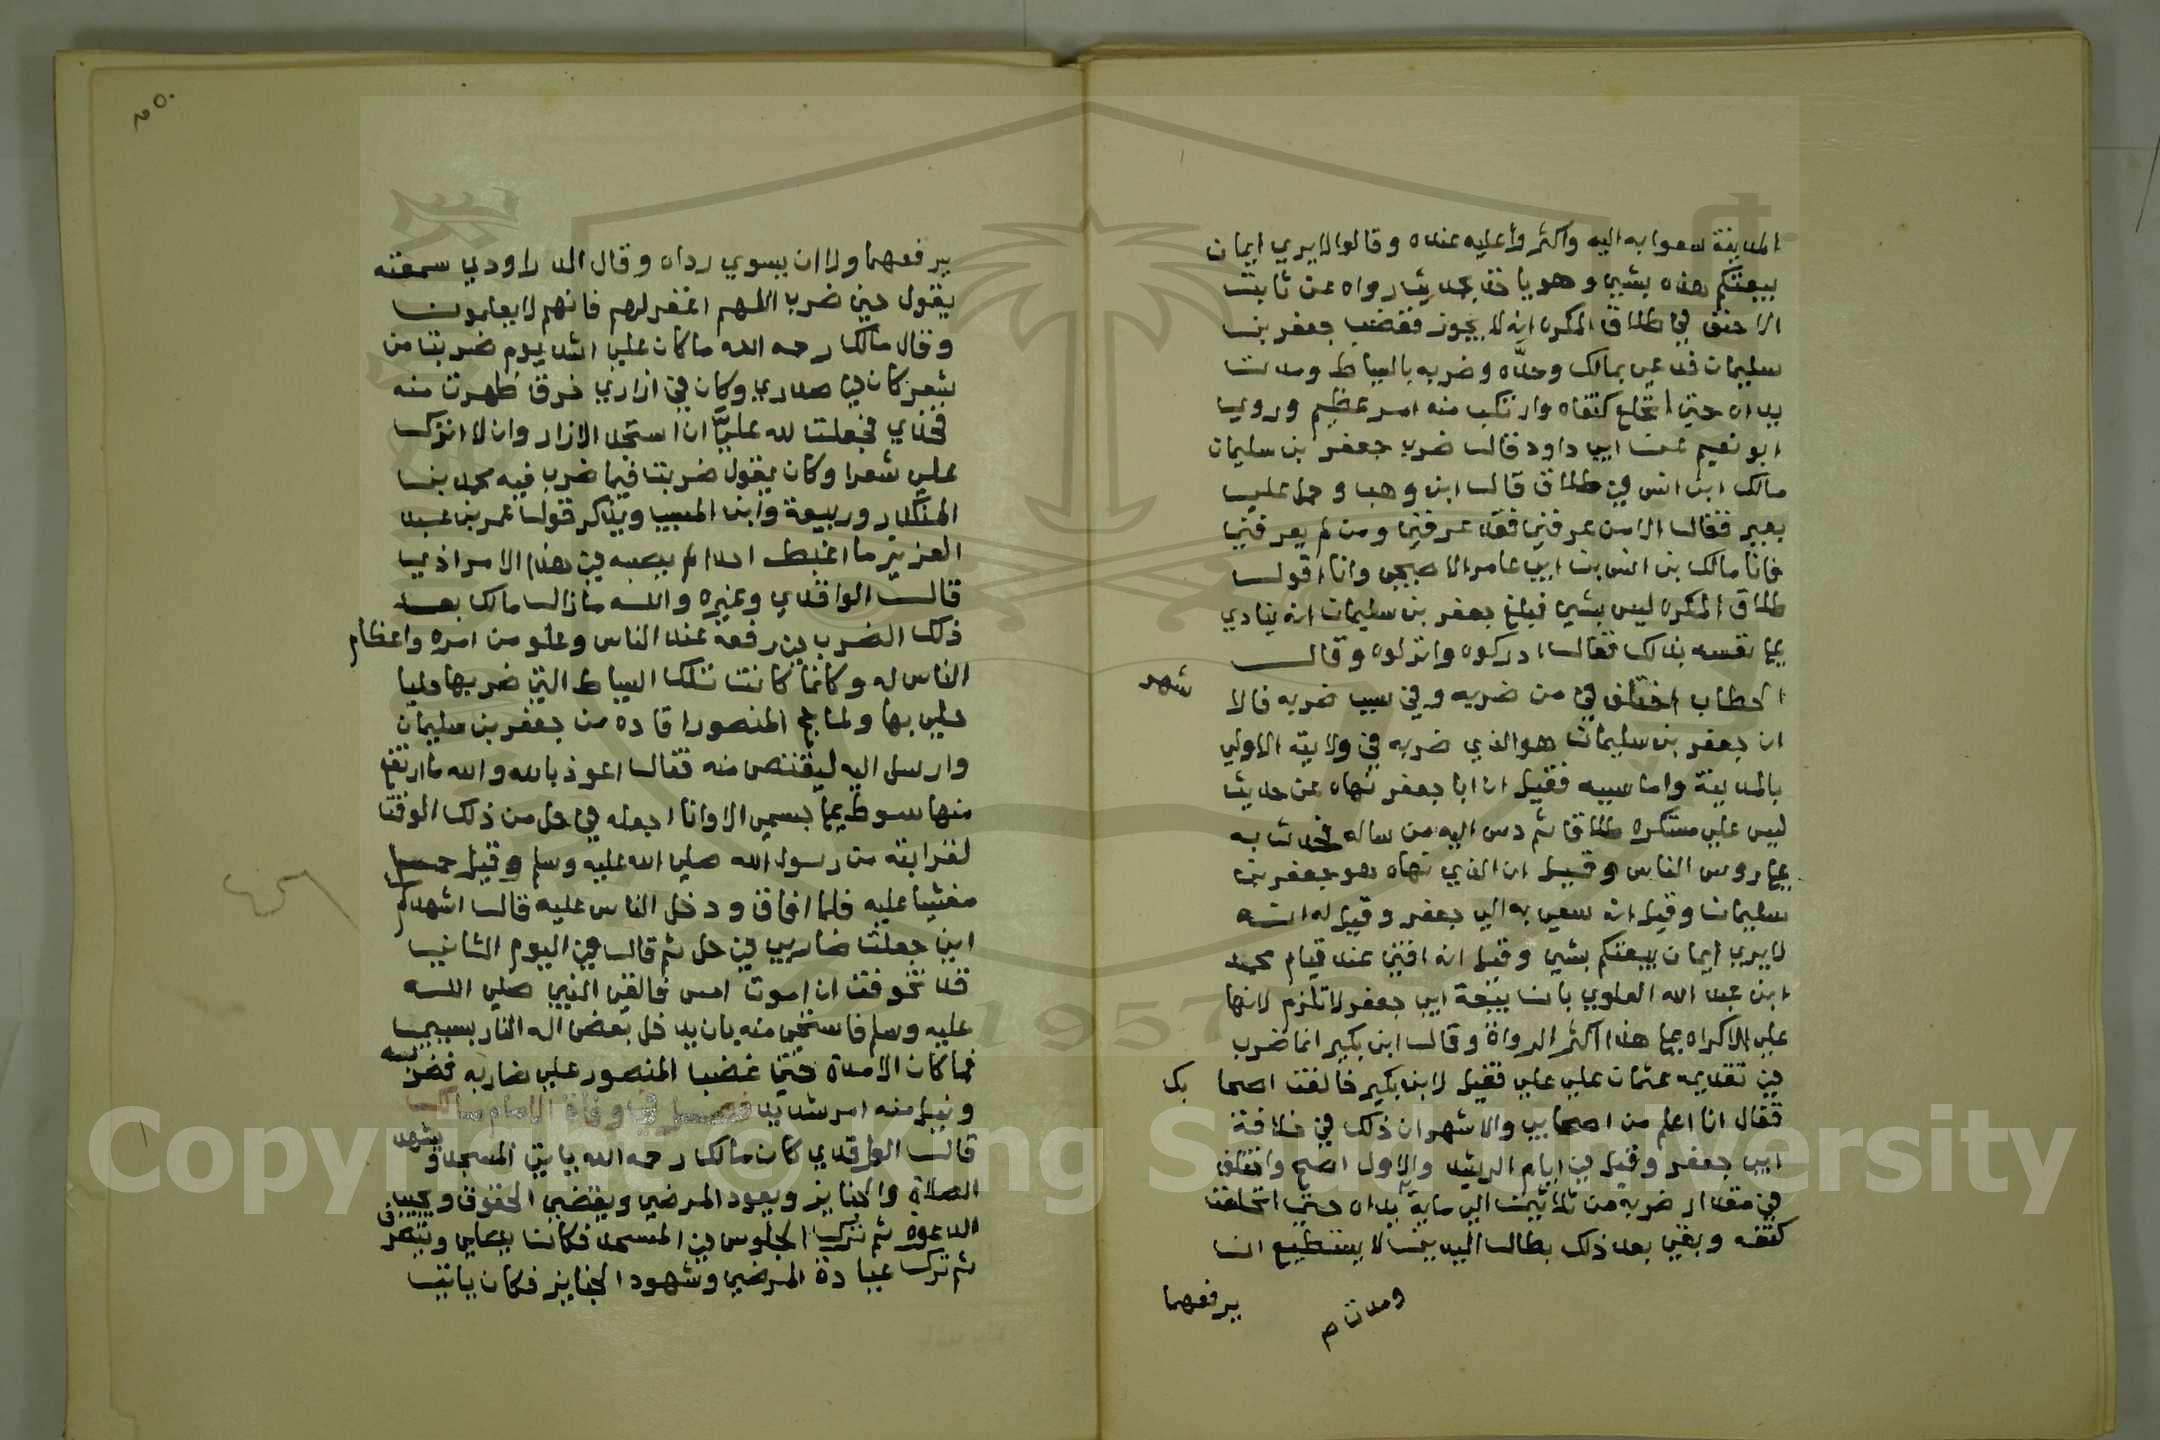 المدينة سعوا به اليه واكثروا عليه عنده وقالوا لا يري ايمان
بيعتكم هذه بشي وهو ياخذ بحديث رواه عن ثابت
الاحنف في طلاق المكره انه لا يجوز فغضب جعفر بن
سليمان فدعي بمالك وحدَّه وضربه بالسياط ومدت
يداه حتي انخلع كتفاه وارتكب منه امر عظيم وروي
ابو نعيم عن ابي داود قال ضرب جعفر بن سليمان
مالك ابن انس في طلاق قال ابن وهب وحمل علي
بعير فقال الا من عرفني فقد عرفني ومن لم يعرفني
فانا مالك بن انس بن ابي عامر الاصبحي وانا اقول
طلاق المكره ليس بشي فبلغ جعفر بن سليمان انه ينادي
علي نفسه بذلك فقال ادركوه وانزلوه وقال
الحطاب اختلف في من ضربه وفي سبب ضربه فالا
شهر
ان جعفر بن سليمان هو الذي ضربه في ولايته الاولي
بالمدينة واما سببه فقيل ان ابا جعفر نهاه عن حديث
ليس علي مستكره طلاق ثم دس اليه من ساله فحدث به
علي روس الناس وقيل ان الذي نهاه هو جعفر بن
سليمان وقيل انه سعي به الي جعفر وقيل له انه
لا يري ايمان بيعتكم بشي وقيل انه افتي عند قيام محمد
ابن عبد الله العلوي بان بيعة ابي جعفر لا تلزم لانها
علي الاكراه علي هذا اكثر الرواة وقال ابن بكير انما ضرب
في تقديمه عثمان علي علي فقيل لابن بكير خالفت اصحا
بك
فقال انا اعلم من اصحابي والاشهر ان ذلك في خلافة
ابي جعفر وقيل في ايام الرشيد والاول اصح واختلف
في مقدار ضربه من ثلاثين الي ماية يداه حتي انخلعت
كتفه وبقي بعد ذلك بطال اليدين لا يستطيع ان
ومدت م
يرفعهما
٢٥٠
يرفعهما ولا ان يسوي رداه وقال الدراوردي سمعته
يقول حين ضرب اللهم اغفر لهم فانهم لا يعلمون
وقال مالك رحمه الله ما كان علي اشد يوم ضربت من
شعر كان في صدري وكان في ازاري خرق ظهرت منه
فخذي فجعلت لله عليَّ ان استجد الازار وان لا اترك
علي شعرا وكان يقول ضربت فيما ضرب فيه محمد بن
المنكدر وربيعة وابن المسيب ويذكر قول عمر بن عبد
العزيز ما اغبط احدا لم يصبه في هذا الامر اذي
قال الواقدي وغيره والله ما زال مالك بعد
ذلك الضرب في رفعة عند الناس وعلو من امره واعظام
الناس له وكانما كانت تلك السياط التي ضربها حليا
حلي بها ولما حج المنصور اقاده من جعفر بن سليمان
وارسل اليه ليقتص منه فقال اعوذ بالله والله ما ارتفع
منها سوط عن جسمي الا وانا اجعله في حل من ذلك الوقت
لقرابته من رسول الله صلي الله عليه وسلم وقيل حمل
مغشيا عليه فلما افاق ودخل الناس عليه قال اشهدكم
اني جعلت ضاربي في حل ثم قال في اليوم الثاني
قد تخوفت ان اموت امس فالقي النبي صلي الله
عليه وسلم فاستحي منه بان يدخل بعض اله النار بسببي
فما كان الا مدة حتي غضب المنصور علي ضاربه فضربه
ونيل منه امر شديد فصل في وفاة الامام مالك
قال الواقدي كان مالك رحمه الله ياتي المسجد ويشهد
الصلاة والجنايز ويعود المرضي ويقضي الحقوق ويجيب
الدعوة ثم ترك الجلوس في المسجد فكان يصلي وينصرف
ثم ترك عيادة المرضي وشهود الجنايز فكان ياتي
Copyright © King Saud University
1957